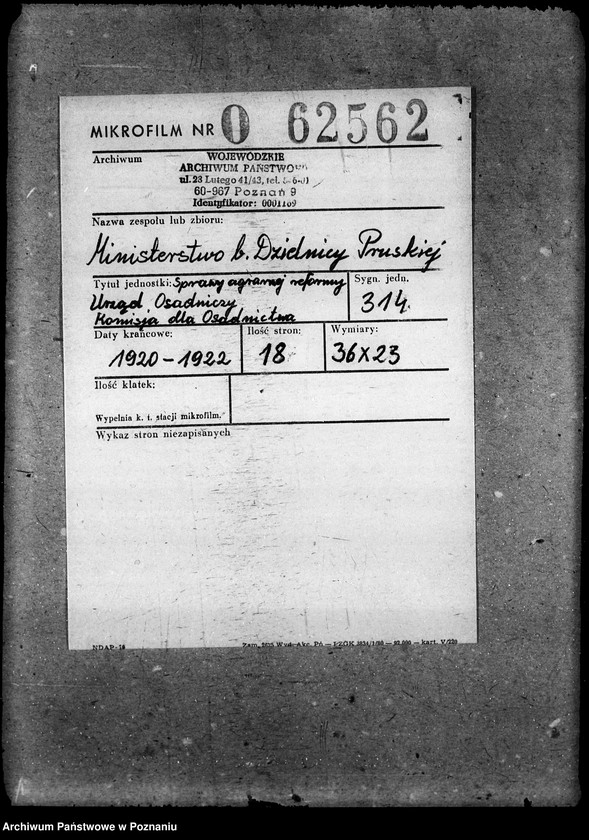 MIKROFILM NR 0 62562
Archiwum
WOJEWÓDZKIE
ARCHIWUM PAŃSTWOWE
ul. 23 Lutego 41/43, tel.
60-967 Poznań 9
Identyfikator: 0001169
Nazwa zespołu lub zbioru:
Ministerstwo b. Dzielnicy Pruskiej
Tytuł jednostki: Sprawy agrarnej reformy
Urząd Osadniczy
Komisja dla Osadnictwa
Sygn. jedn.
314
Daty krańcowe:
1920-1922
Ilość stron:
18
Wymiary:
36x23
Ilość klatek:
Wypełnia k. t. stacji mikrofilm.
Wykaz stron niezapisanych
NDAP-18
Archiwum Państwowe w Poznaniu